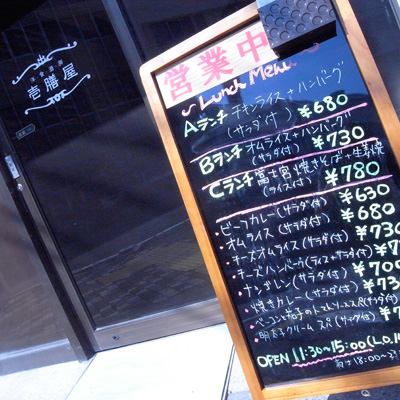 洋食酒房
壱膳屋
営業中
Lunch Menu
Aランチ チキンライス+ハンバーグ
(サラダ付) ¥680
Bランチ オムライス+ハンバーグ
(サラダ付) ¥730
Cランチ 富士宮焼きそば+生姜焼
(ライス付) ¥780
・ビーフカレー(サラダ付) ¥630
・オムライス(サラダ付) ¥680
・チーズオムライス(サラダ付) ¥730
・チーズハンバーグ(ライス+サラダ付)
・ナンタレン(サラダ付) ¥700
・焼きカレー(サラダ付)
・ベーコンと茄子のトマトソーススパ(サラダ付)
・明太子クリームスパ(サラダ付)
OPEN 11:30~15:00(L.O.